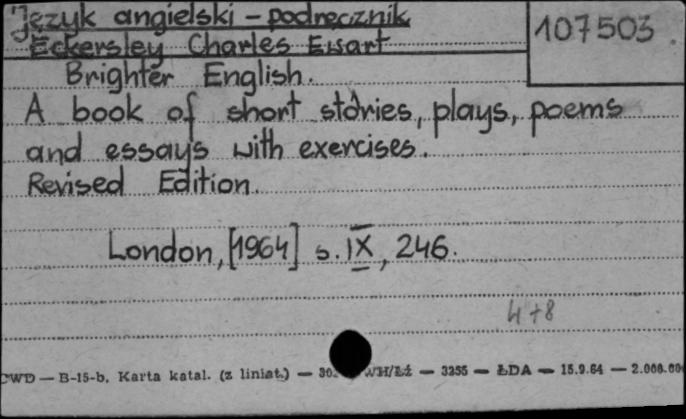 Język angielski - podręcznik
107503
Eckersley Charles Ewart
Brighter English.
A book of short stories, plays, poems
and essays with exercises.
Revised Edition.
London, [1964] s. IX, 246.
4+8
CWD — B-15-b, Karta katal. (z liniat.) — WH/Łż — 3255 — ŁDA — 15.9.64 — 2.000.000